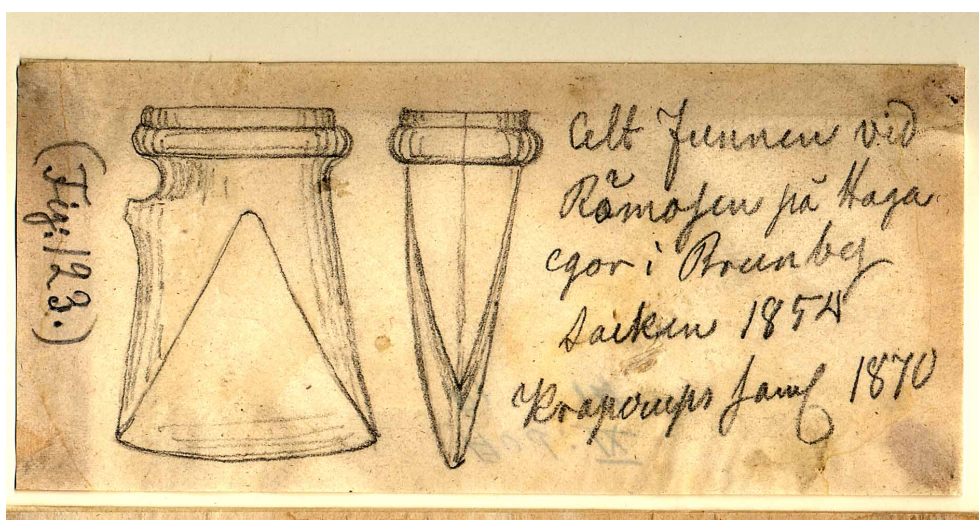 (Fig: 123.)
Celt funnen vid
Römosen på Haga
egor i Brunby
Socken 1854
Krapperups Saml 1870